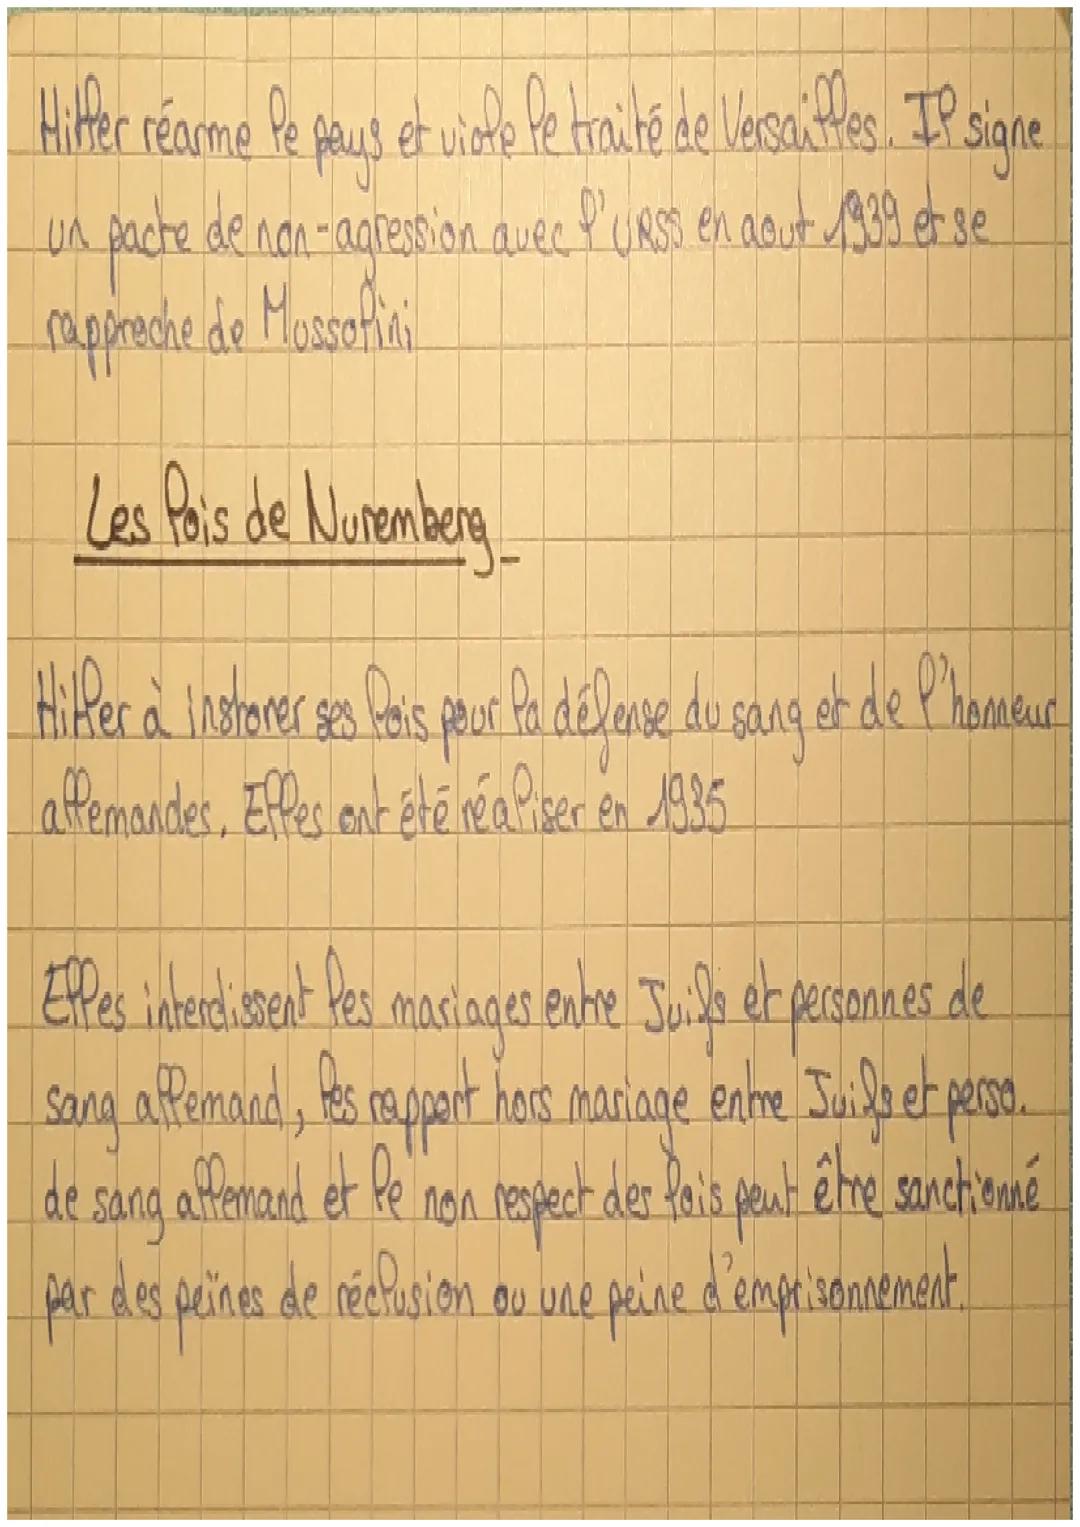 Hitler réarme le pays et viole le traité de Versailles. Il signe
un pacte de non-agression avec l'URSS en aout 1939 et se
rapproche de Mussolini
Les lois de Nuremberg
Hitler à instorer ses lois pour la défense du sang et de l'honneur
allemandes. Elles ont été réaliser en 1935
Elles interdissent les mariages entre Juifs et personnes de
sang allemand, les rapport hors mariage entre Juifs et perso.
de sang allemand et le non respect des lois peut être sanctionné
par des peines de réclusion ou une peine d'emprisonnement.